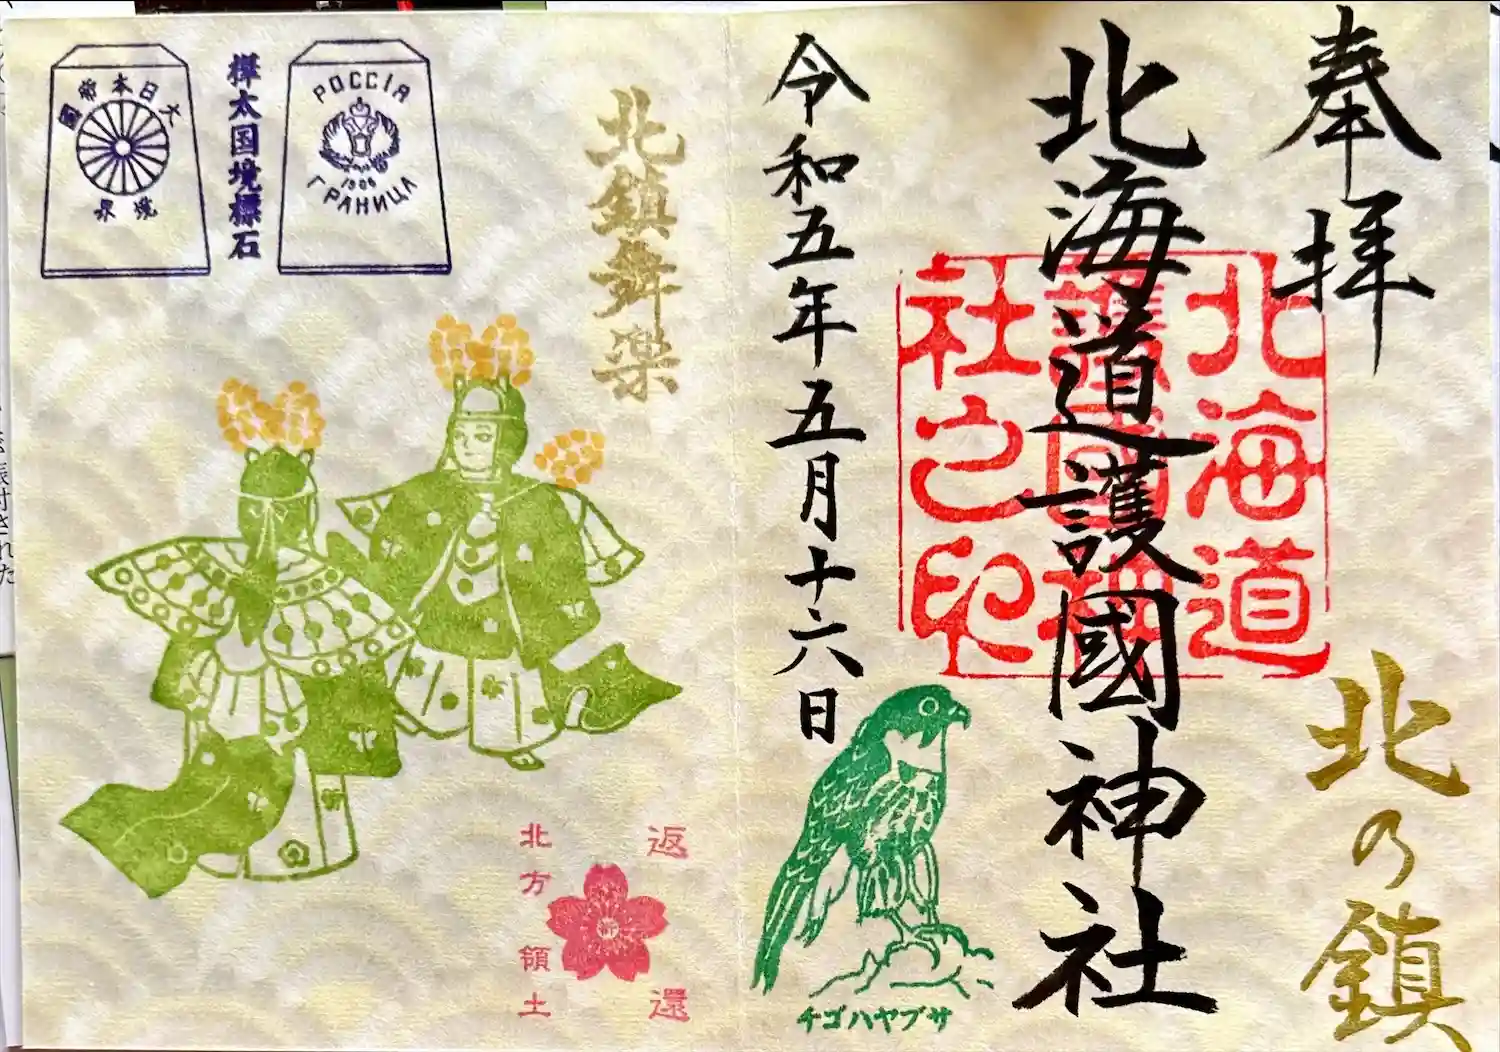 奉拝
北の鎮
北海道護國神社
北海道
護國神
社之印
令和五年五月十六日
チゴハヤブサ
北鎮舞楽
РОССІЯ
1906
ГРАНИЦА
樺太国境標石
大日本帝國
境界
返還
北方領土